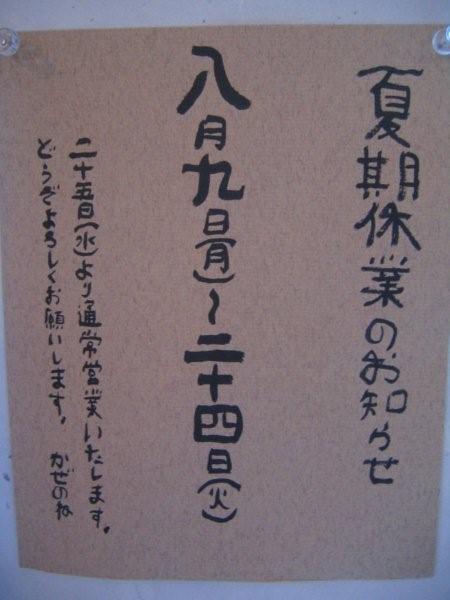 夏期休業のお知らせ
八月九日(月)～二十四日(火)
二十五日(水)より通常営業いたします。
どうぞよろしくお願いします。 かぜのね